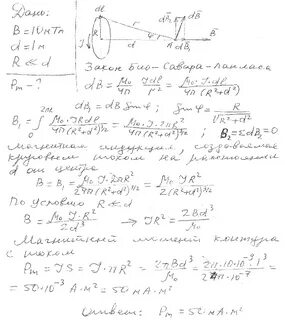 Дано:
B = 10 нТл
d = 1 м
R ≪ d
Pm - ?
dl
R
r
φ
d
A
dB
dB
Закон Био-Савара-Лапласа
dB = μ₀/4π · Jdl/r² = μ₀·J·dl/4π(R²+d²)
dB₁ = dB sin φ ; sin φ = R/√(R²+d²)
B₁ = ∫₀ μ₀·JRdl/4π(R²+d²)^3/2 = μ₀·J·2πR²/4π(R²+d²)^3/2 ; B₂ = ΣdB₂ = 0
Магнитная индукция, создаваемая
круговым током на расстоянии
d от центра
B = B₁ = μ₀ J·2πR²/4π(R²+d²)^3/2 = μ₀ J R²/2(R²+d²)^3/2
По условию R ≪ d
B = μ₀·J·R²/2d³ → JR² = 2Bd³/μ₀
Магнитный момент контура
с током
Pm = JS = J·πR² = 2πBd³/μ₀ = 2π·10·10⁻⁹·1³/4π·10⁻⁷ =
= 50·10⁻³ А·м² = 50 мА·м²
Ответ: Pm = 50 мА·м²